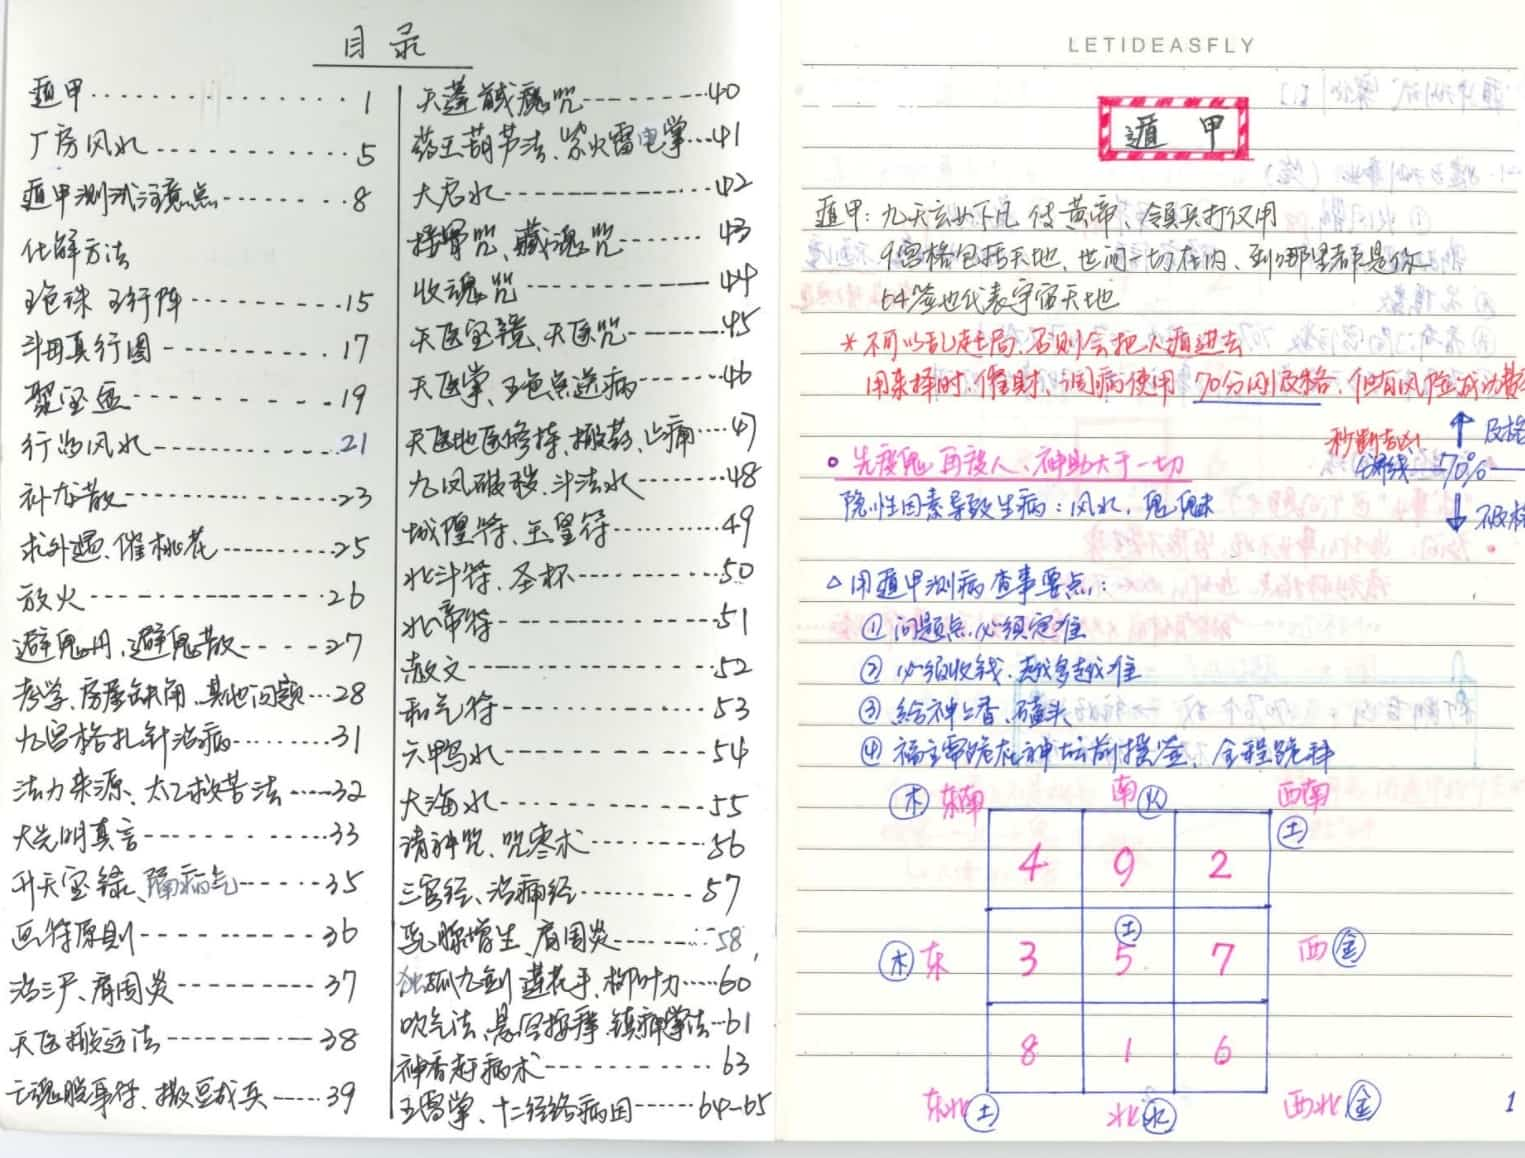 目录
遁甲 1
厂房风水 5
遁甲测试注意点 8
化解方法
五色珠 五行阵 15
斗母真行图 17
聚宝盆 19
行的风水 21
补龙散 23
求外遇、催桃花 25
放火 26
避鬼丹、避鬼散 27
考学、房屋缺角、其他问题 28
九宫格扎针治病 31
法力来源、太乙救苦法 32
大光明真言 33
升天宝箓、隔病气 35
画符原则 36
治三尸、肩周炎 37
天医搬运法 38
亡魂脱身符、撒豆成兵 39
天蓬馘魔咒 40
药王葫芦法、紫火雷电掌 41
大君水 42
接骨咒、藏魂咒 43
收魂咒 44
天医宝镜、天医咒 45
天医掌、五色点送病 46
天医地医修持、搬药、止痛 47
九凤破秽、斗法水 48
城隍符、玉皇符 49
北斗符、圣杯 50
北帝符 51
赦文 52
和气符 53
六鸭水 54
大海水 55
请神咒、咒枣术 56
三官经、治痛经 57
乳腺增生、肩周炎 58
独孤九剑 莲花手、柳叶刀 60
吹气法、悬空按摩、镇神掌法 61
神香赶病术 63
五雷掌、十二经络病因 64-65
LETIDEASFLY
遁 甲
遁甲：九天玄女下凡 传黄帝、领兵打仗用
9宫格包括天地、世间一切在内、到哪里都是你
64签也代表宇宙天地
* 不可以乱起局、否则会把人遁进去
用来择时、催财、调病使用 70分以上及格、但有风险成功
秒断吉凶
分界线 70%
及格
不及格
• 先度鬼 再度人、神助大于一切
隐性因素导致生病：风水，鬼魅
△ 用遁甲测病 查事要点：
① 问题点必须定准
② 必须收钱、越多越准
③ 给神上香、磕头
④ 福主需跪在神坛前摇签、全程跪拜
木 东南 南 火 西南
土
4 9 2
土
木 东 3 5 7 西 金
8 1 6
东北 土 北 水 西北 金
1